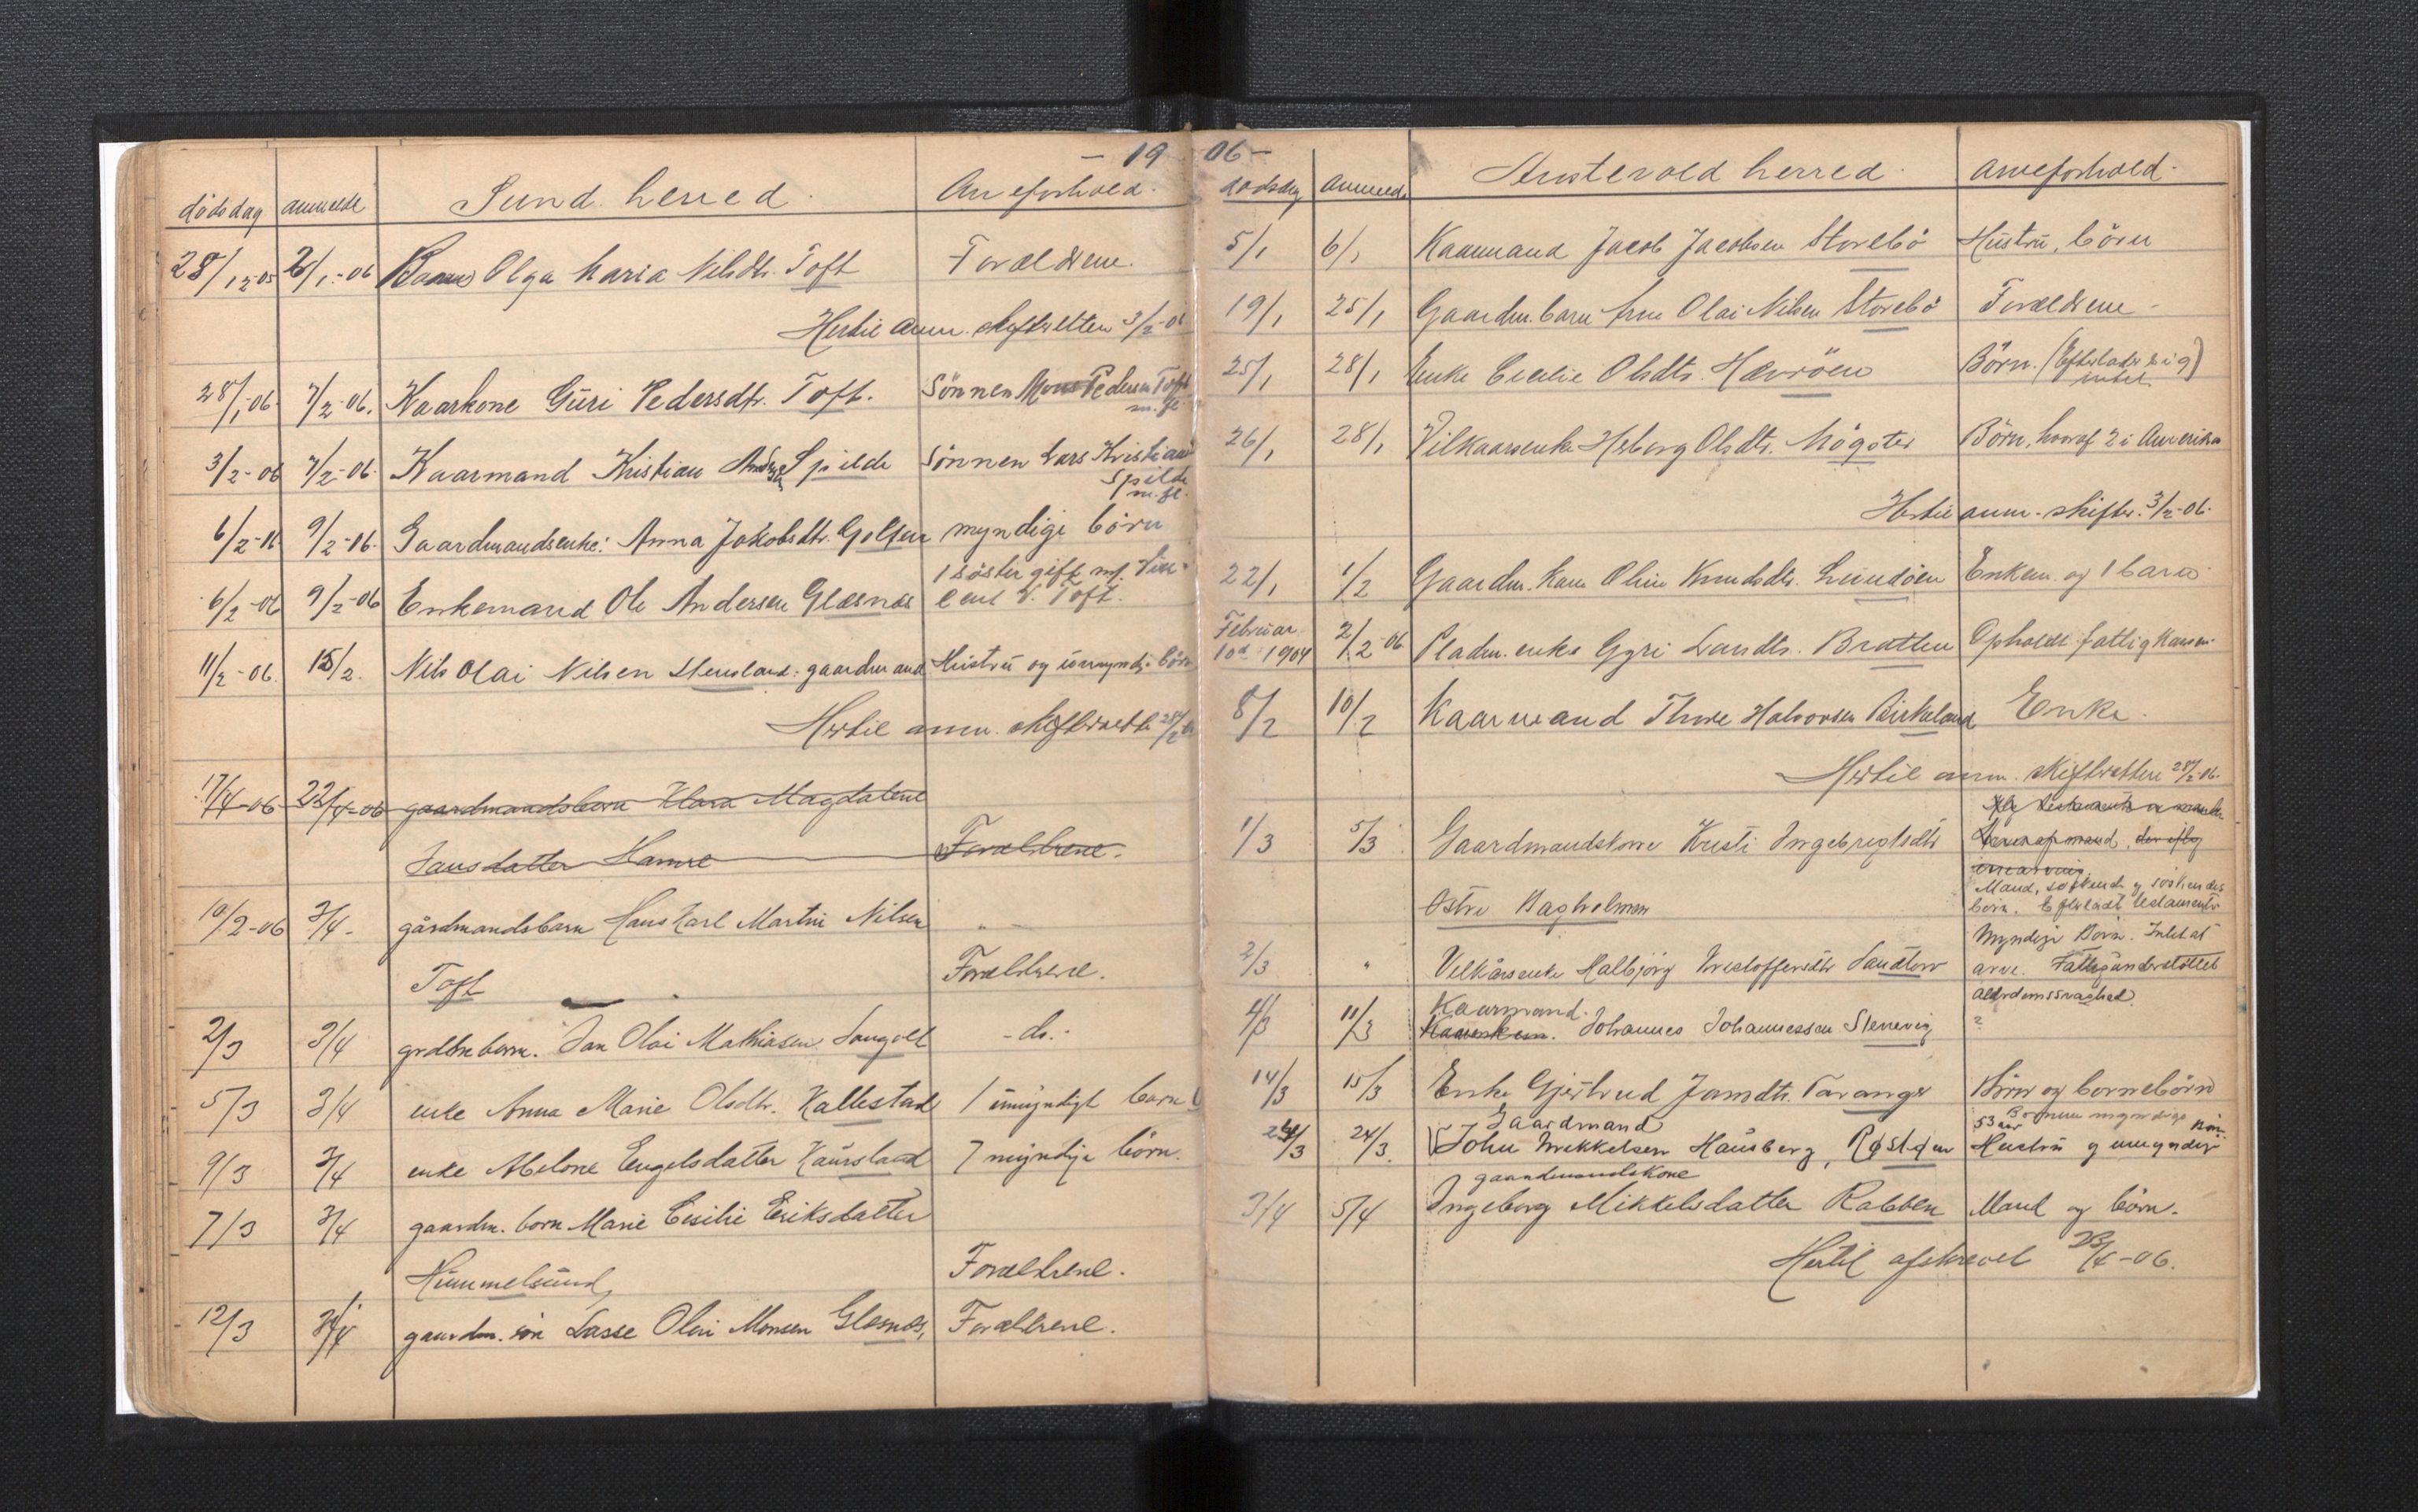 - 19 06 -
dödsdag anmeldt Sund herred. Arveforhold.
28/12-05 2/1-06 Barn Olga Maria Nilsdtr. Toft Forældrene.
Hertil anm. skifteretten 3/2-06
28/1-06. 7/2-06. Kaarkone Guri Pedersdtr. Toft. Sönnen Mons Pedersen Toft
m. fl.
3/2-06 7/2-06. Kaarmand Kristian Anders. Spilde Sönnen Lars Kristians
Spilde
m. fl.
6/2-06. 9/2-06. Gaardmandsenke: Anna Jakobsdtr. Golten myndige börn
1 söster gift m/
6/2-06 9/2-06 Enkemand Ole Andersen Glæsnes Toft.
11/2-06. 15/2. Nils Olai Nilsen Stensland: gaardmand Hustru og umyndi. börn
Hertil anm. skifterette 28/2-06
17/4-06 22/4-06 gaardmandsbarn Klara Magdalene
Jansdatter Hamre Forældrene.
10/2-06 3/4- gårdmandsbarn Hans Karl Martin Nilsen
Toft Forældrene.
2/3 3/4 grdbrbarn. Jan Olai Mathiasen - do.-
5/3 3/4 enke Anna Marie Olsdtr. Kallestad 1 umyndigt barn
9/3 3/4 enke Abelone Engelsdatter Kausland 7 myndige börn.
7/3 3/4 gaardm. barn Marie Cesilie Eriksdatter
Hummelsund, Forældrene.
12/3 3/4 gaardm. sön Lasse Olai Monsen Glesnes, Forældrene.
dødsdag anmeldt Austevold herred. arveforhold.
5/1 6/1 Kaarmand Jacob Jacobsen Storebö Hustru, börn
19/1 25/1 Gaardm. barn Arne Olai Nilsen Storebö Forældrene -
25/1 28/1 Enke Cecilie Olsdtr. Hævröen Börn. (Efterlader sig
intet)
26/1 28/1 Vilkaarsenke Herborg Olsdtr. Møgster Börn, hvoraf 2 i Amerika
Hertil anm. skifter. 3/2-06.
22/1 1/2 Gaardm. kone Oline Knudsdtr. Lunnöen Enkem. og 1 barn
Februar
10d 1904 2/2-06 Pladm. enke Gyri Larsdtr. Bratten Opholdt fattigkassen.
8/2 10/2 Kaarmand Thore Halvorsen Birkeland Enke.
Hertil anm. skifterettere 28/2-06.
1/3 5/3 Gaardmandskone Kristi Ingebrigtsdtr
Østre Bagholmen Mand, söskend og söskendes
börn. Efterladt testamente
2/3 " Velkårsenke Halbjörg Kristoffersdtr Sandtorv Myndige Börn. Intet at
arve. Fattigunderstöttet
4/3 11/3 Kaarmand. Johannes Johannessen Stenevig alderdomssvaghed
?
14/3 15/3 Enke Gjertrud Jansdtr. Tarangr Börn og bornebörn
Gaardmand 53 aar Börnene myndige
24/3 24/3. John Mikkelsen Hausberg, Røstøen Hustru og umyndige börn
gaardmandskone
3/4 5/4 Ingeborg Mikkelsdatter Rabben Mand og börn.
Hertil afskrevet 23/4-06.